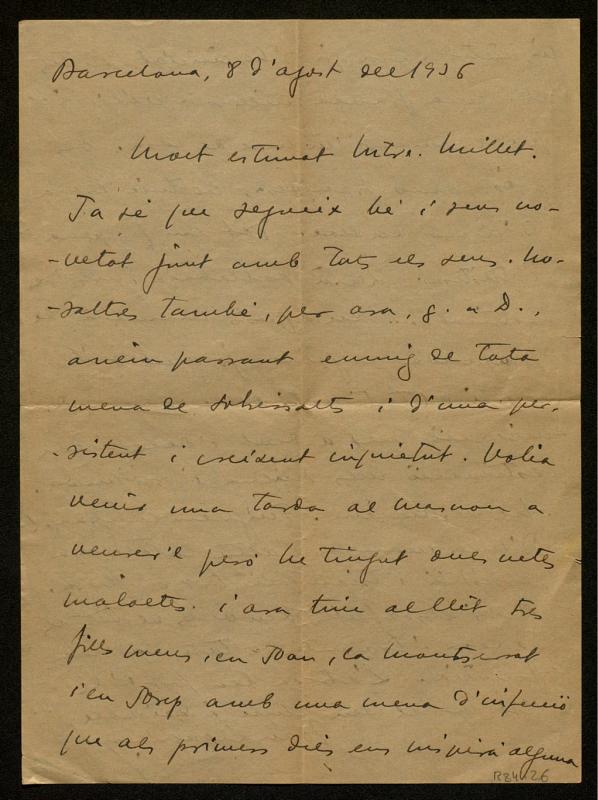 Barcelona, 8 d'agost del 1936
Molt estimat Mtre. Millet.
Ja sé que segueix bé i sens no-
-vetat junt amb tots els seus. No-
-saltres també, per ara, g. a D.,
anem passant enmig de tota
mena de sobressalts i d'una per-
-sistent i creixent inquietut. Volia
venir una tarda al Masnou a
veurer'l però he tingut dues netes
malaltes. i ara tinc al llit tres
fills meus, en Joan, la Montserrat
i en Josep amb una mena d'infecció
que als primers dies ens inspirà alguna